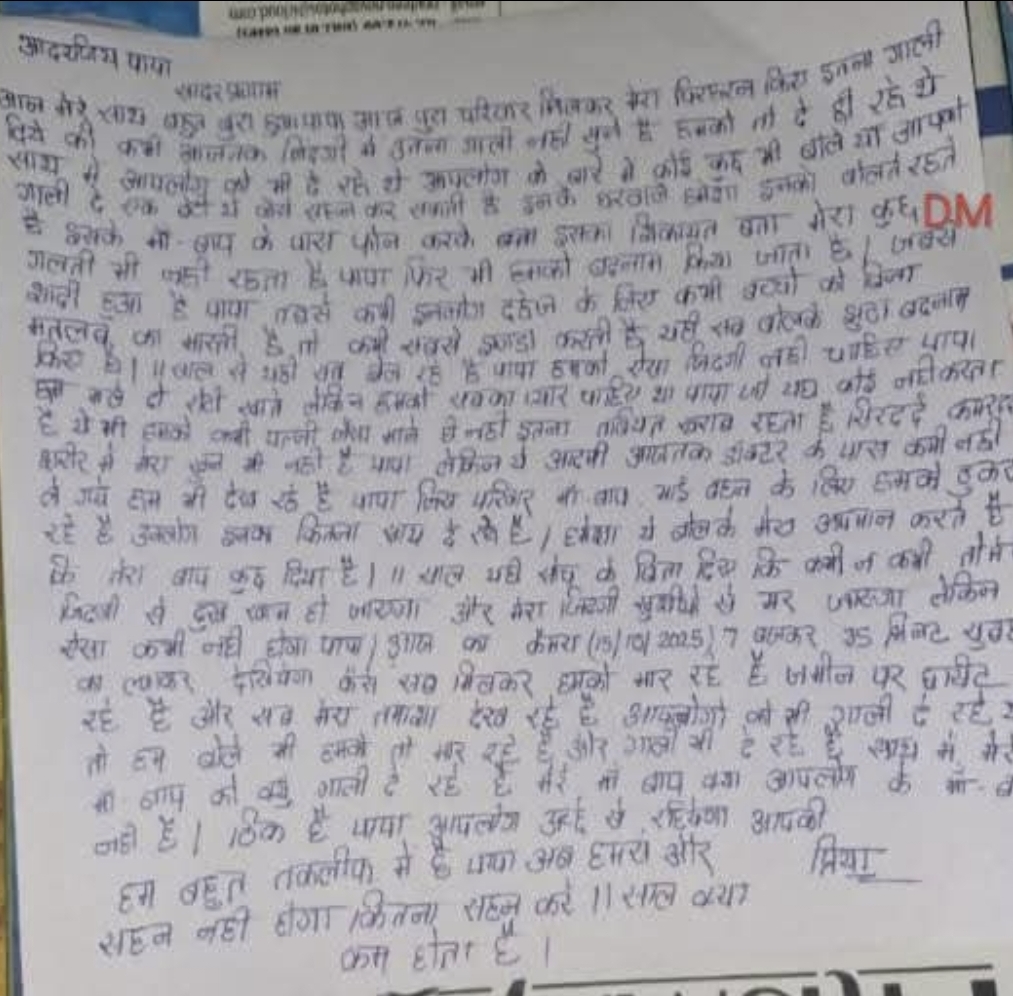 आदरणिय पापा
सादर प्रणाम
आज मेरे साथ बहुत बुरा हुआ पापा आज पुरा परिवार मिलकर मेरा किए इतना गाली
दिये की कभी आजतक जिंदगी मे इतना गाली नही सुने है हमको तो दे ही रहे थे
साथ मे आपलोग को भी दे रहे थे आपलोग के बारे मे कोई कुछ भी बोले या आपको
गाली दे एक बेटी कैसे सहन कर सकती है इनके घरवाले हमेशा इनको बोलते रहते
है इसके माँ-बाप के पास फोन करके बता इसका शिकायत बता मेरा कुछ DM
गलती भी नही रहता है पापा फिर भी हमको बदनाम किया जाता है। जबसे
शादी हुआ है पापा तबसे कभी इनलोग दहेज के लिए कभी बच्चो को बिना
मतलब का मारती है तो कभी सबसे झगडा करती है यही सब बोलके झुठा बदनाम
किए है। 11 साल से यही सब झेल रहे है पापा हमको ऐसा जिंदगी नही चाहिए पापा
हम भले दो रोटी खाते लेकिन हमको सबका प्यार चाहिए था पापा जो यहा कोई नही करता
है ये भी हमको कभी पत्नी जैसा माने ही नही इतना तबियत खराब रहता है सिरदर्द कमरदर्द
शरीर मे मेरा खुन भी नही है पापा लेकिन ये आदमी आजतक डॉक्टर के पास कभी नही
ले गये हम भी देख रहे है पापा जिस परिवार माँ बाप भाई बहन के लिए हमको ठुकरा
रहे है उनलोग इनका कितना साथ दे रहे है। हमेशा ये बोलके मेरा अपमान करते है
कि तेरा बाप कुछ दिया है। 11 साल यही सोच के बिता दिए कि कभी न कभी तो मेरे
जिंदगी से दुख खत्म हो जाएगा और मेरा जिंदगी खुशीयो से भर जाएगा लेकिन
ऐसा कभी नही होगा पापा। आज का कैमरा (15/10/2025) 7 बजकर 35 मिनट सुबह
का लगाकर देखियेगा कैसे सब मिलकर हमको मार रहे है जमीन पर घसीट
रहे है और सब मेरा तमाशा देख रहे है आपलोगो को भी गाली दे रहे थे
तो हम बोले भी हमको तो मार रहे है और गाली भी दे रहे है साथ में मेरे
माँ बाप को क्यु गाली दे रहे है मेरे माँ बाप क्या आपलोग के माँ-बाप
नही है। ठिक है पापा आपलोग अच्छे से रहियेगा आपकी
प्रिया
हम बहुत तकलीफ मे है पापा अब हमसे और
सहन नही होगा कितना सहन करे 11 साल क्या
कम होता है।